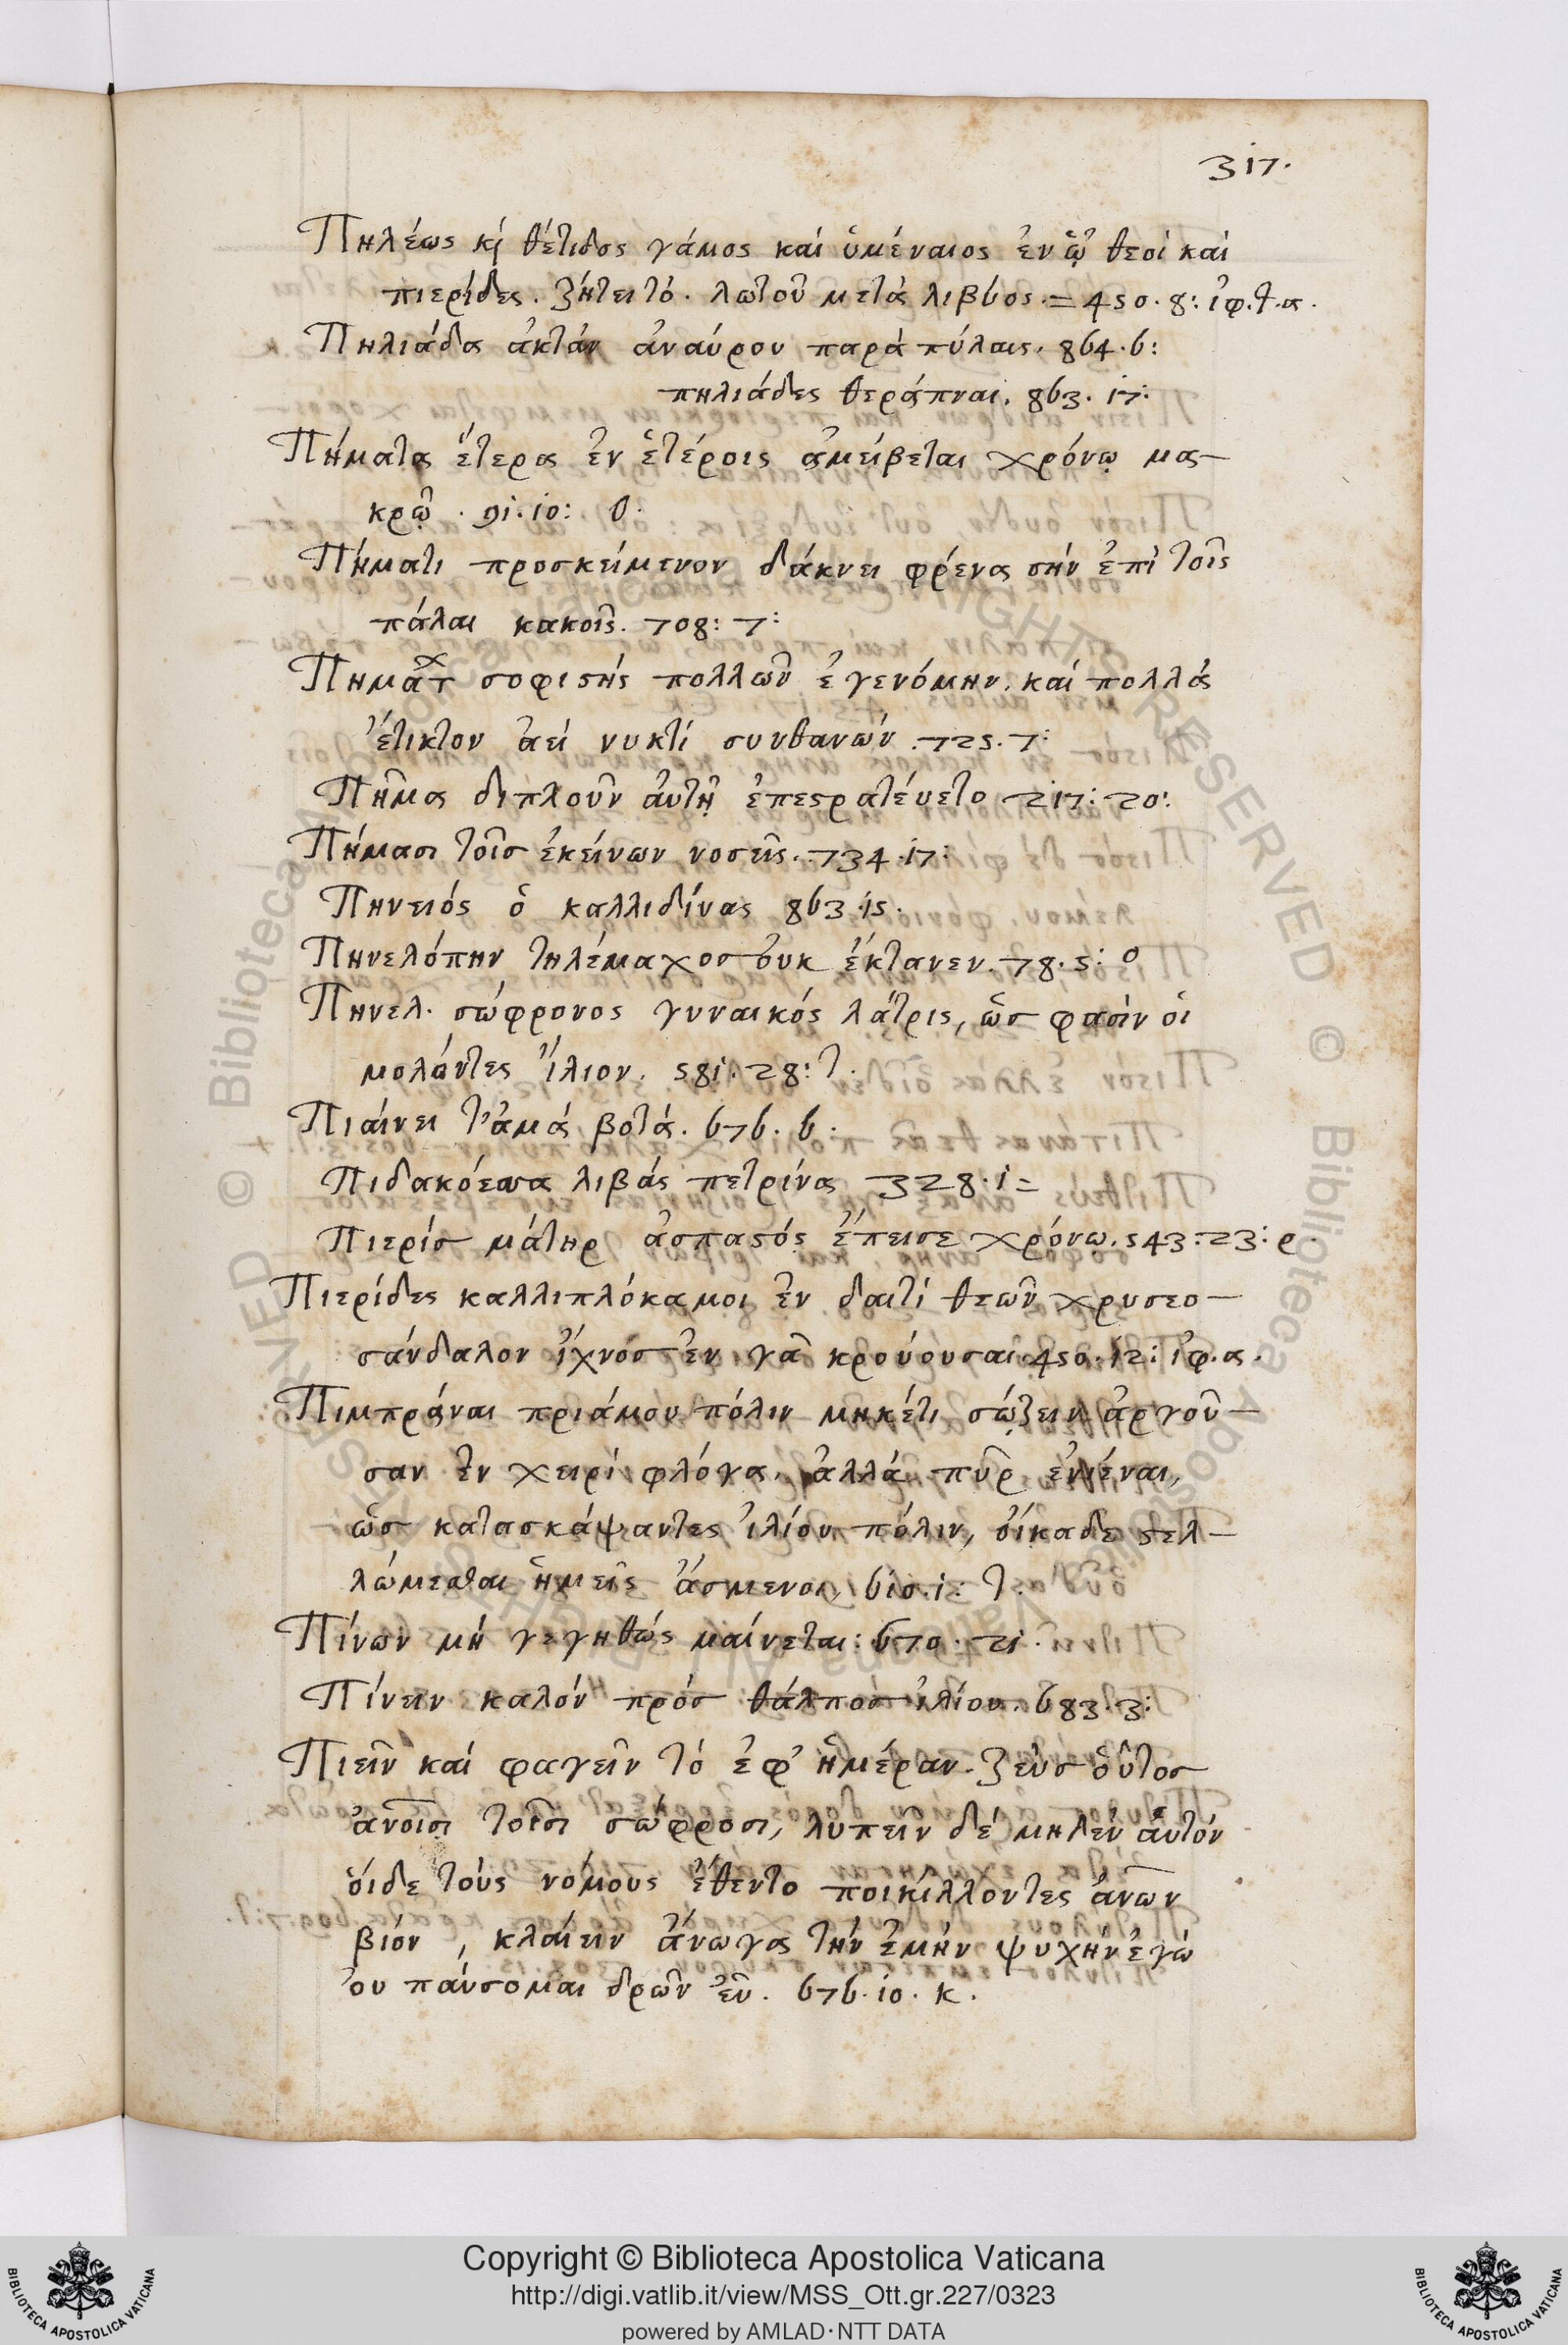 317.
Πηλέως κὶ θέτιδος γάμος καὶ ὑμέναιος ἐν ᾧ θεοὶ καὶ
πιερίδες. ζήτει τὸ. λωτοῦ μετὰ λιβύος.= 450. 8: ἰφ.τ.α.
Πηλιάδα ἀκτὰν ἀναύρου παρὰ πύλαις. 864.6:
πηλιάδες θεράπναι. 863. 17:
Πήματα ἕτερα ἐν ἑτέροις ἀμείβεται χρόνῳ μα-
κρῷ . 91.10: ο.
Πήματι προσκείμενον δάκνει φρένα σὴν ἐπὶ τοῖς
πάλαι κακοῖς. 708: 7:
σοφιϛὴς πολλῶν ἐγενόμην. καὶ πολλὰ
ἔτικτον ἀεὶ νυκτὶ συνθανών. 725. 7:
Πῆμα διπλοῦν αὐτῇ ἐπεϛρατέυετο 217: 20:
Πήμασι τοῖσ ἐκείνων νοσεῖς. 734.17:
Πηνειός ὁ καλλιδίνας 863.15.
Πηνελόπην τηλέμαχοσ ὀυκ ἔκτανεν. 78. 5: ο
Πηνελ. σώφρονος γυναικός λάτρις, ὥσ φασὶν οἱ
μολόντες ἴλιον. 581. 28: τ.
Πιαίνει τ'ἀμὰ βοτά. 676. 6.
Πιδακόεσσα λιβὰς πετρίνα 328. 1=
Πιερίσ μάτηρ ἀσπαϛός ἔπεισε χρόνω. 543: 23: ρ.
Πιερίδες καλλιπλόκαμοι ἐν δαιτὶ θεῶν χρυσεο-
σάνδαλον ἴχνοσ ἐν γᾶ κρούουσαι. 450. 12: ἰφ.α.
Πιμπράναι πριάμου πόλιν μηκέτι σῴζειν ἀργοῦ-
σαν ἐν χειρὶ φλόγα, ἀλλὰ πῦρ ἐνιέναι,
ὥσ κατασκάψαντες ἰλίου πόλιν, οἴκαδε ϛελ-
λώμεσθαι ἡμεῖς ἄσμενοι. 610.1: τ.
Πίνων μὴ γεγηθώς μαίνεται: 670. 21.
Πίνειν καλόν πρόσ θάλποσ ἡλίου. 683. 3:
Πιεῖν καὶ φαγεῖν τὸ ἐφ' ἡμέραν. Ζεὺσ οὗτοσ
ἀνοῖσι τοῖσι σώφροσι, λυπεῖν δὲ μηδὲν αὑτόν
ὅιδε τοὺς νόμους ἔθεντο ποικίλλοντες ἀνων
βίον , κλαίειν ἄνωγα τὴν ἐμὴν ψυχὴν ἐγὼ
ὀυ παύσομαι δρῶν ἐῦ. 676. 10. κ.
Copyright © Biblioteca Apostolica Vaticana
http://digi.vatlib.it/view/MSS_Ott.gr.227/0323
powered by AMLAD·NTT DATA